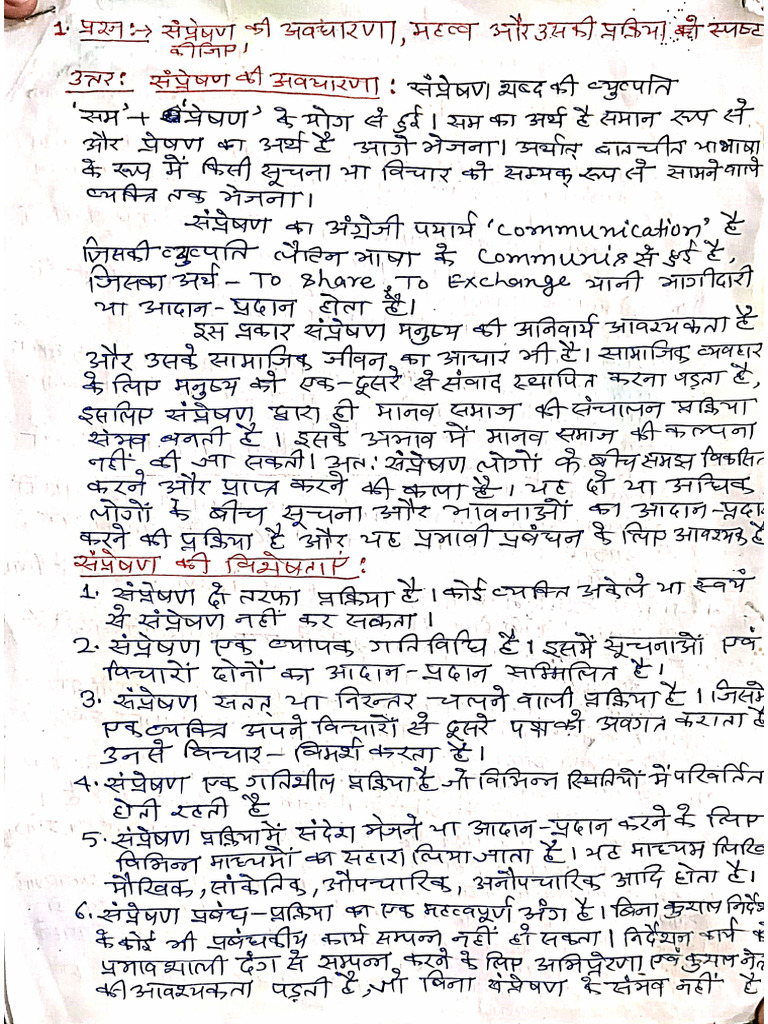 1. प्रश्न:→ संप्रेषण की अवधारणा, महत्व और उसकी प्रक्रिया को स्पष्ट
कीजिए।
उत्तर: संप्रेषण की अवधारणा : संप्रेषण शब्द की व्युत्पति
'सम' + 'प्रेषण' के योग से हुई। सम का अर्थ है समान रूप से
और प्रेषण का अर्थ है आगे भेजना। अर्थात् बातचीत या भाषा
के रूप में किसी सूचना या विचार को सम्यक् रूप से सामने वाले
व्यक्ति तक भेजना।
संप्रेषण का अंग्रेजी पर्याय 'communication' है
जिसकी व्युत्पति लैटिन भाषा के communis से हुई है,
जिसका अर्थ - To share, To Exchange यानी भागीदारी
या आदान-प्रदान होता है।
इस प्रकार संप्रेषण मनुष्य की अनिवार्य आवश्यकता है
और उसके सामाजिक जीवन का आधार भी है। सामाजिक व्यवहार
के लिए मनुष्य को एक-दूसरे से संवाद स्थापित करना पड़ता है,
इसलिए संप्रेषण द्वारा ही मानव समाज की संचालन प्रक्रिया
संभव बनती है। इसके अभाव में मानव समाज की कल्पना
नहीं की जा सकती। अत: संप्रेषण लोगों के बीच समझ विकसित
करने और प्राप्त करने की कला है। यह दो या अधिक
लोगों के बीच सूचना और भावनाओं का आदान-प्रदान
करने की प्रक्रिया है और यह प्रभावी प्रबंधन के लिए आवश्यक है
संप्रेषण की विशेषताएं :
1. संप्रेषण दो तरफा प्रक्रिया है। कोई व्यक्ति अकेले या स्वयं
से संप्रेषण नहीं कर सकता।
2. संप्रेषण एक व्यापक गतिविधि है। इसमें सूचनाओं एवं
विचारों दोनों का आदान-प्रदान सम्मिलित है।
3. संप्रेषण सतत् या निरन्तर चलने वाली प्रक्रिया है। जिसमें
एक व्यक्ति अपने विचारों से दूसरे पक्ष को अवगत कराता है
उनसे विचार-विमर्श करता है।
4. संप्रेषण एक गतिशील प्रक्रिया है जो विभिन्न स्थितियों में परिवर्तित
होती रहती है
5. संप्रेषण प्रक्रिया में संदेश भेजने या आदान-प्रदान करने के लिए
विभिन्न माध्यमों का सहारा लिया जाता है। यह माध्यम लिखि
मौखिक, सांकेतिक, औपचारिक, अनौपचारिक आदि होता है।
6. संप्रेषण प्रबंध-प्रक्रिया का एक महत्वपूर्ण अंग है। बिना कुशल निर्देश
के कोई भी प्रबंधकीय कार्य सम्पन्न नहीं हो सकता। निर्देशन कार्य को
प्रभावशाली ढंग से सम्पन्न करने के लिए अभिप्रेरणा एवं कुशल नेत
की आवश्यकता पड़ती है, जो बिना संप्रेषण के संभव नहीं है